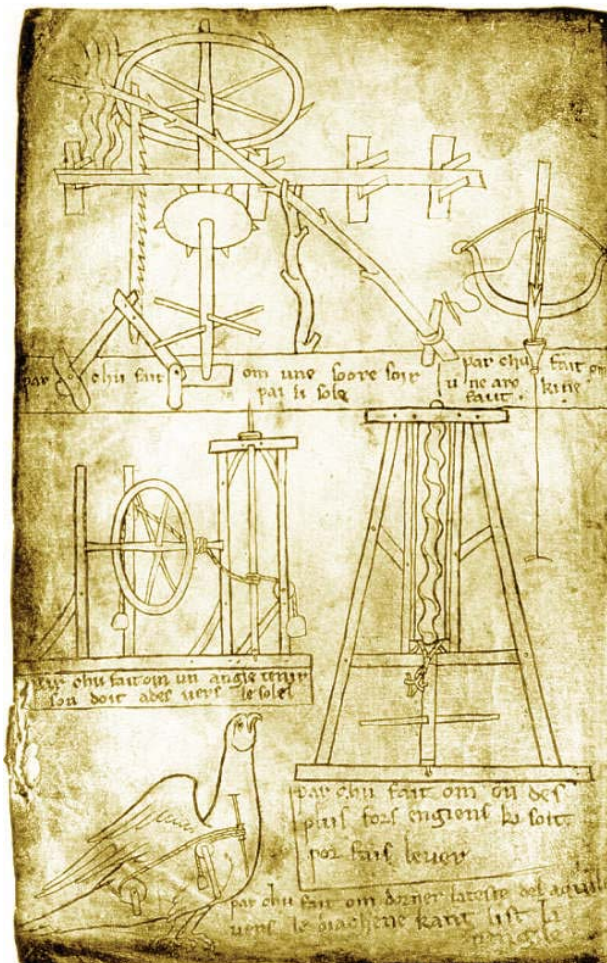 par chu fait om une soore soir
par li sole
par chu fait om
une arc ki ne
faut .
par chu fait om un angle tenir
son doit ades vers le solel
par chu fait om on des
plus fors engiens ki soit
por fais lever
par chu fait om dorner la teste del aquile
vers le diachene kant list la